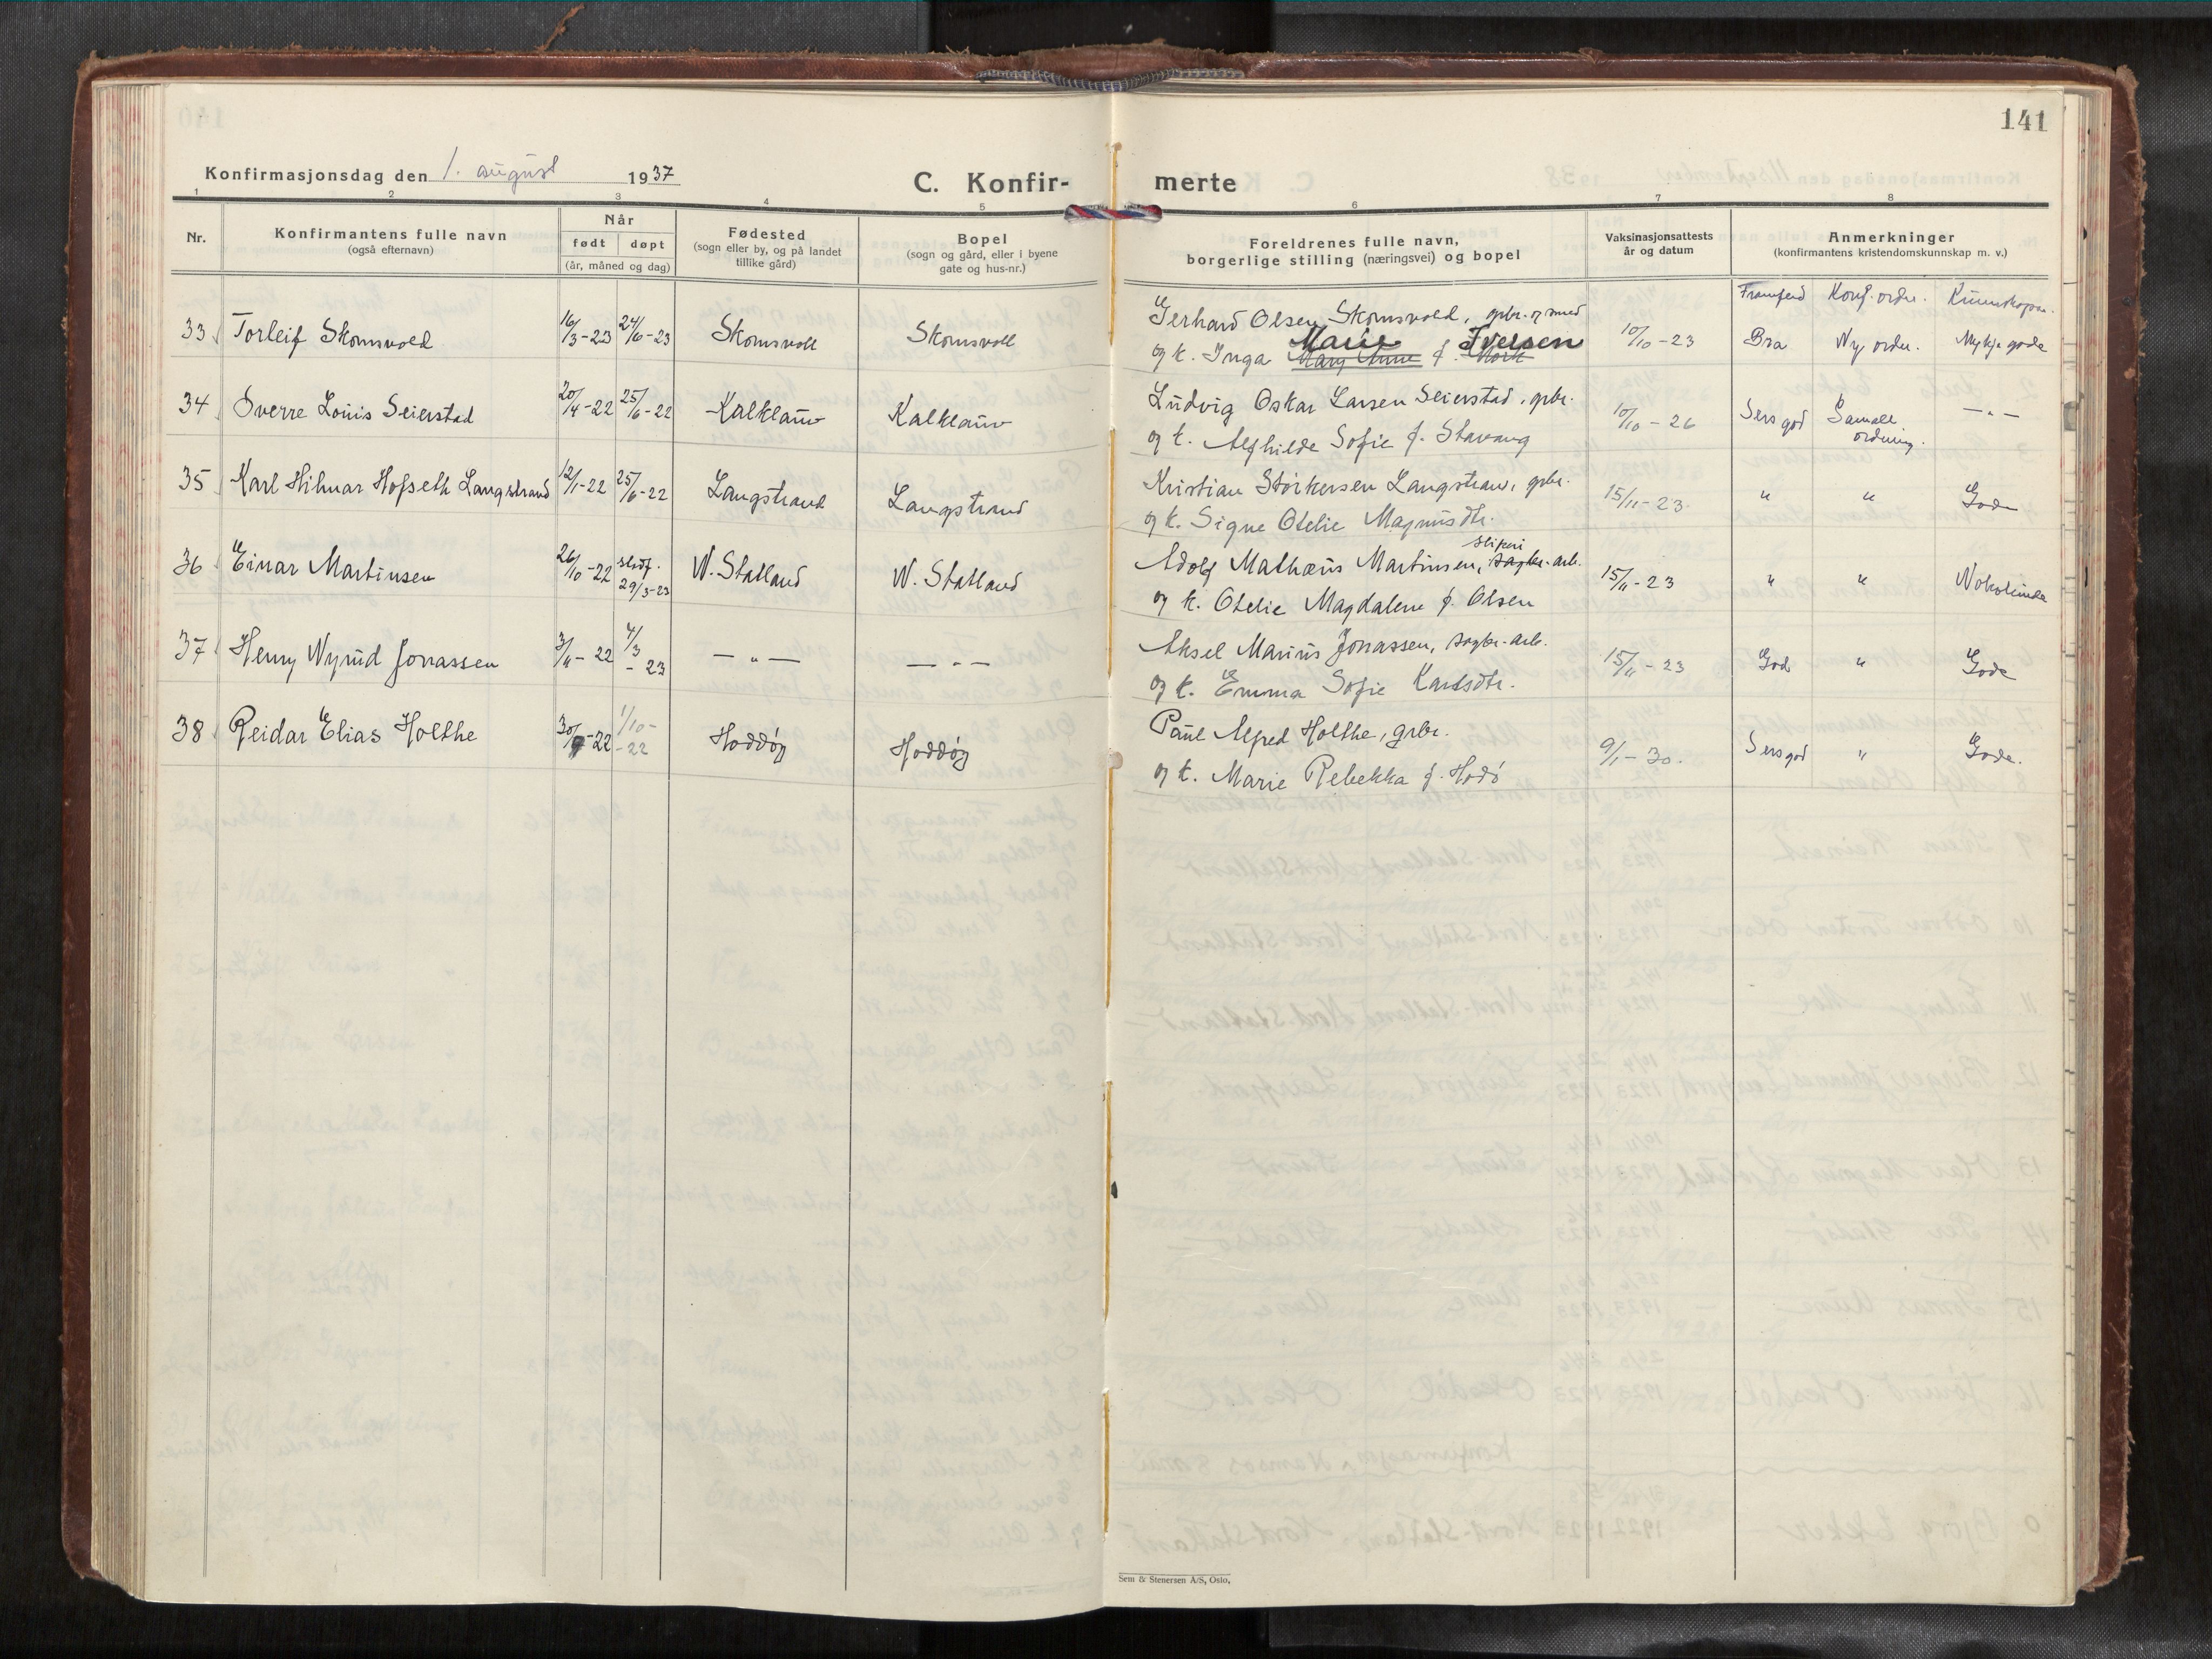 141
Konfirmasjonsdag den 1. august 1937
C. Konfir- merte
1 2 3 4 5 6 7 8
Nr.
Konfirmantens fulle navn
(også efternavn)
Når
født døpt
(år, måned og dag)
Fødested
(sogn eller by, og på landet
tillike gård)
Bopel
(sogn og gård, eller i byene
gate og hus-nr.)
Foreldrenes fulle navn,
borgerlige stilling (næringsvei) og bopel
Vaksinasjonsattests
år og datum
Anmerkninger
(konfirmantens kristendomskunnskap m. v.)
Framferd Konf. ordn. Kunnskapar.
33 Torleif Skomsvold 16/3-23 24/6-23 Skomsvoll Skomsvoll Gerhard Olsen Skomsvold, grbr. og smed 10/10-23 Bra Ny ordn. Mykje gode
og k. Inga Mary Anne Marie f. Mork Iversen
34 Sverre Louis Seierstad 20/4-22 25/6-22 Kalklauv Kalklauv Ludvig Oskar Larsen Seierstad, grbr. 10/10-26 Sers god Gamall ordning. —„—
og k. Alfhilde Sofie f. Stavang
35 Karl Hilmar Hofseth Langstrand 12/1-22 25/6-22 Langstrand Langstrand Kristian Storkersen Langstrand, grbr. 15/11-23. " " Gode
og k. Signe Otelie Magnusdtr.
36 Einar Martinsen 26/10-22 stadf. 29/3-23 N. Statland N. Statland Adolf Mathæus Martinsen, sliperi sagbr.-arb. 15/11-23 " " Nokolunde
og k. Otelie Magdalene f. Olsen
37 Henry Nyrud Jonassen 3/11-22 4/3-23 —„— —„— Aksel Marius Jonassen, sagbr.-arb. 15/11-23 God " Gode
og k. Emma Sofie Karlsdtr.
38 Reidar Elias Holthe 30/7-22 1/10-22 Hoddøy Hoddøy Paul Alfred Holthe, grbr. 9/1-30. Sers god " Gode.
og k. Marie Rebekka f. Hodø
Sem & Stenersen A/S, Oslo,